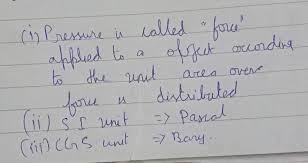 (i) Pressure is called "force"
applied to a object according
to the unit area over
force is distributed
(ii) S I unit => Pascal
(iii) CGS unit => Bary.